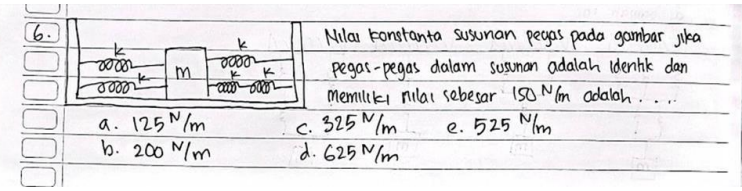 6.
k
k
k
m
k
k
Nilai konstanta susunan pegas pada gambar jika
pegas-pegas dalam susunan adalah identik dan
memiliki nilai sebesar 150 N/m adalah ....
a. 125 N/m
c. 325 N/m
e. 525 N/m
b. 200 N/m
d. 625 N/m